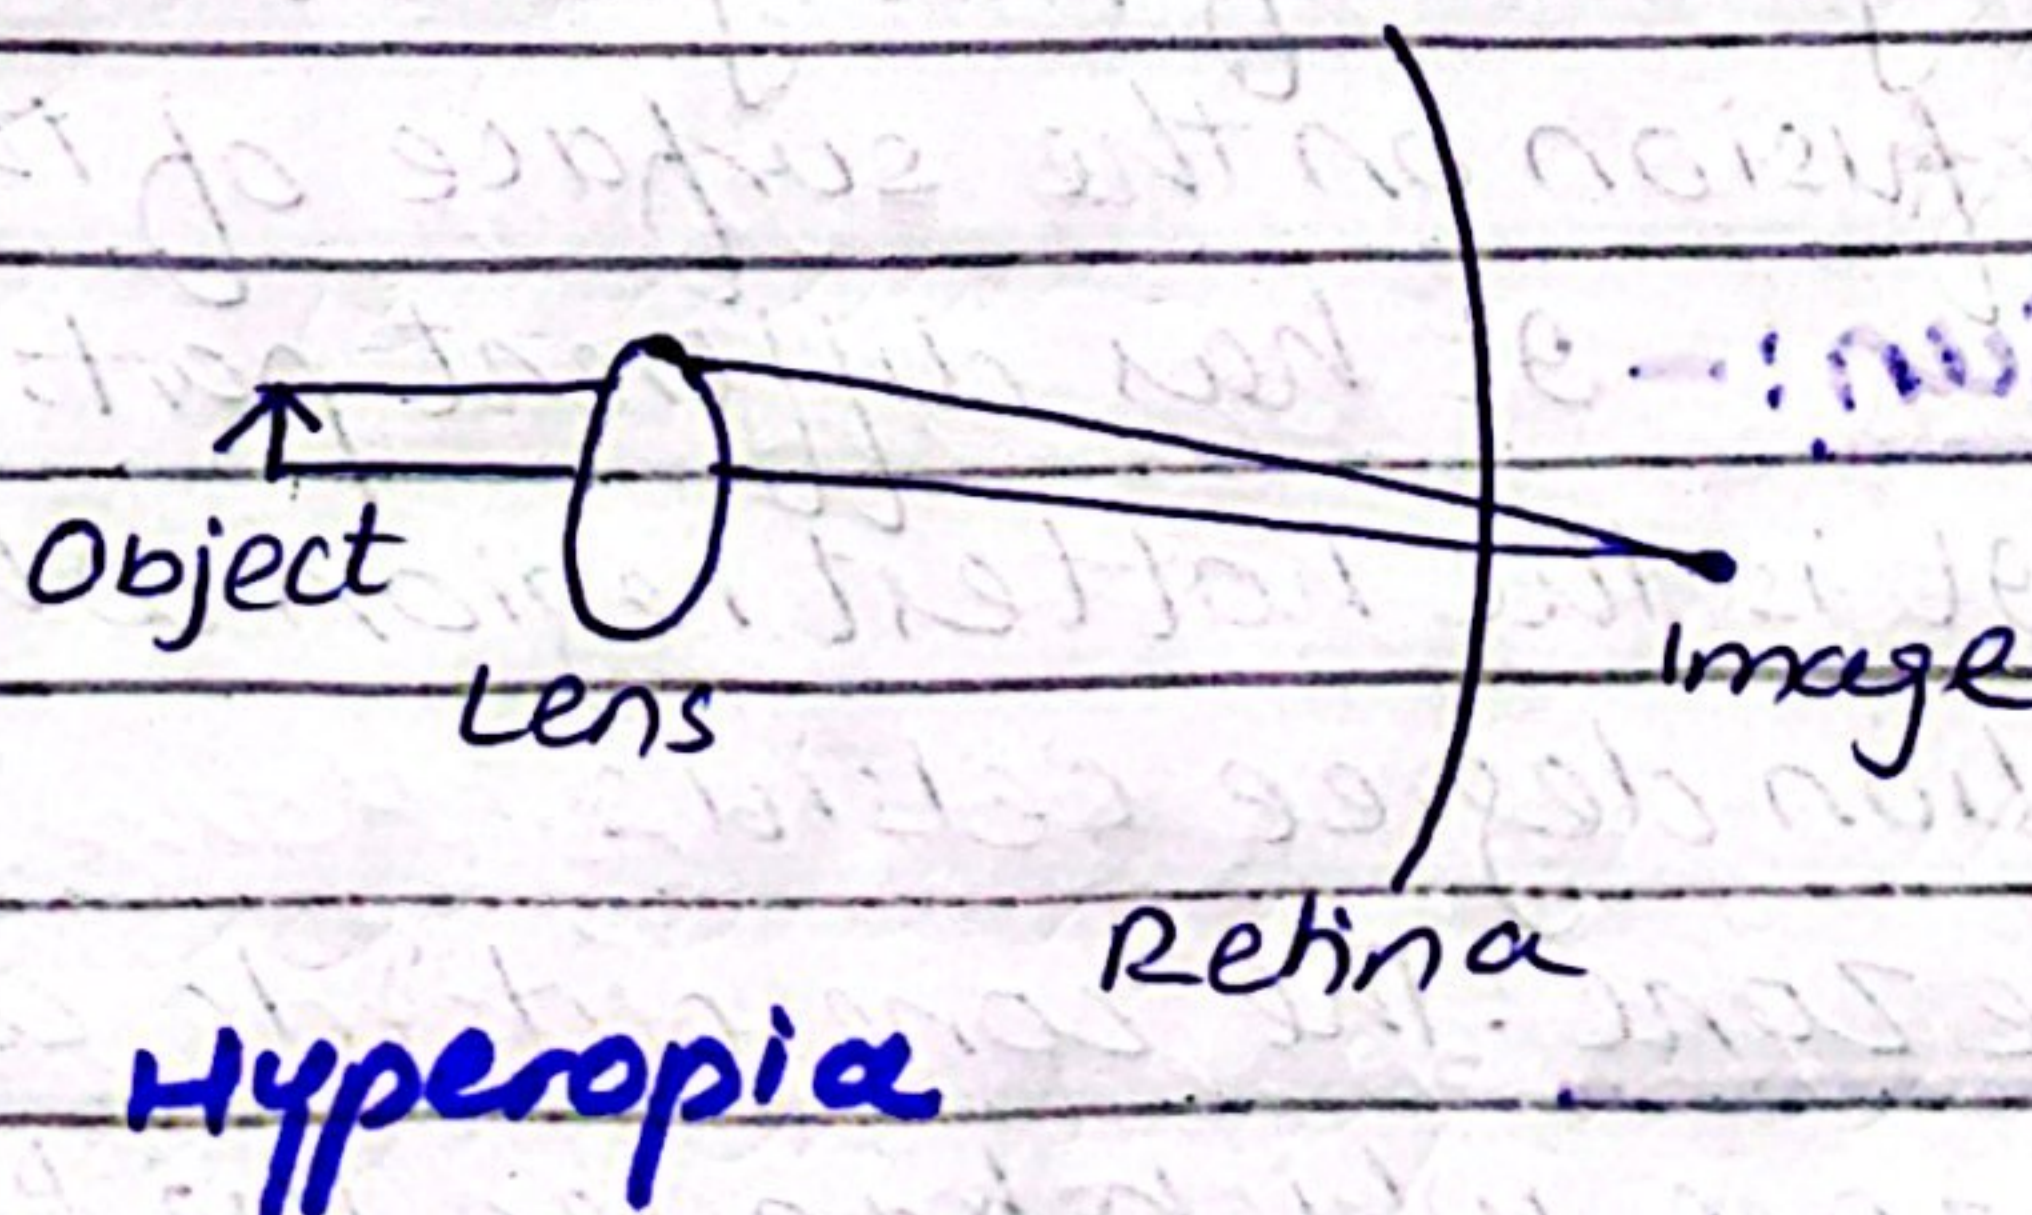 Object
Lens
Image
Retina
Hyperopia